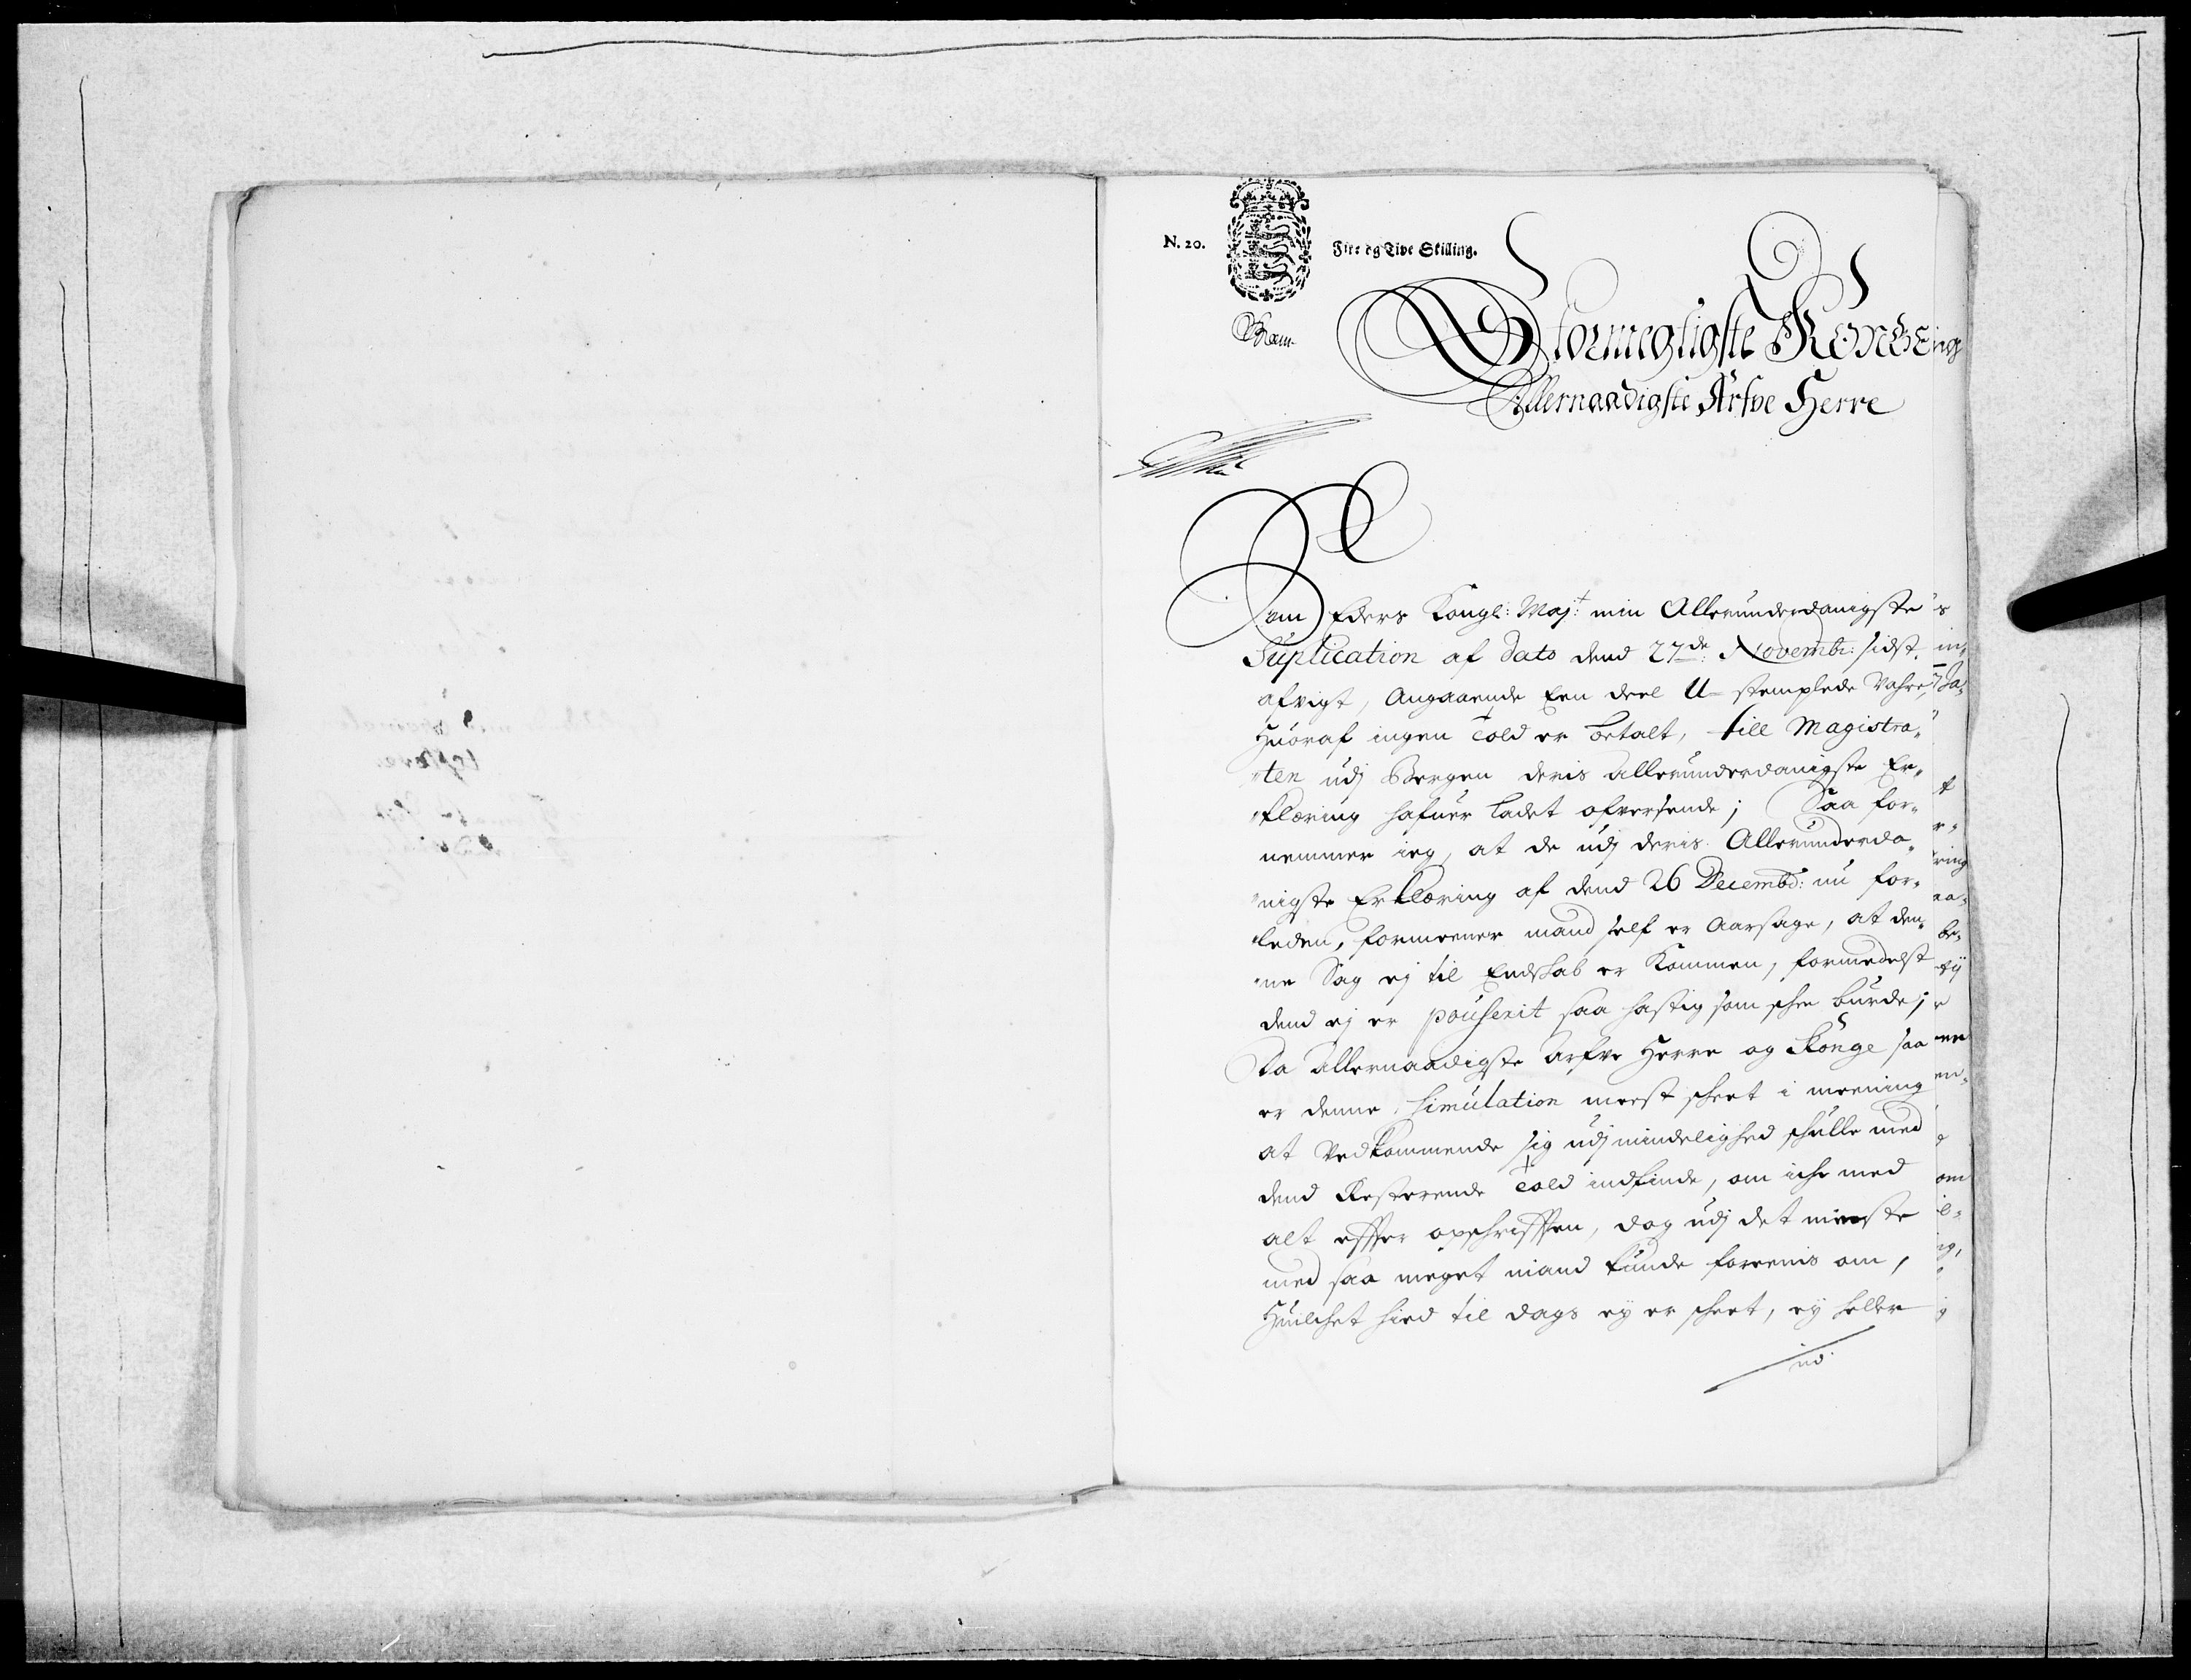 N. 20.
Fire og Tive Skilling.
Stormegtigste Konning
Allernaadigste Arfve Herre
Som Eders Kongl: Maj:t min Allerunderdanigste
Suplication af dato dend 27de Novembr: sidst
afvigt, Angaaende Een deel U-stemplede Vahre,
Huoraf ingen Told er betalt, till Magistra-
ten udj Bergen deris Allerunderdanigste Er-
klæring hafuer ladet ofversende; Saa for-
nemmer ieg, at de udj deris Allerunderda-
nigste Erklæring af dend 26 Decembr: nu for-
leden, formeener mand self er Aarsage, at den-
ne Sag ej til Endskab er Kommen, formedelst
dend ej er pouserit saa hastig som skee burde;
Da Allernaadigste Arfve Herre og Konge saa
er denne simulation meest skeet i meening
at Vedkommende sig udj mindelighed skulle med
dend Resterende Told indfinde, om iche med
alt efter opskrifften, dog udj det minste
med saa meget mand kunde foreenis om,
Huilchet hied til dags ey er skeet, ey heller
ud